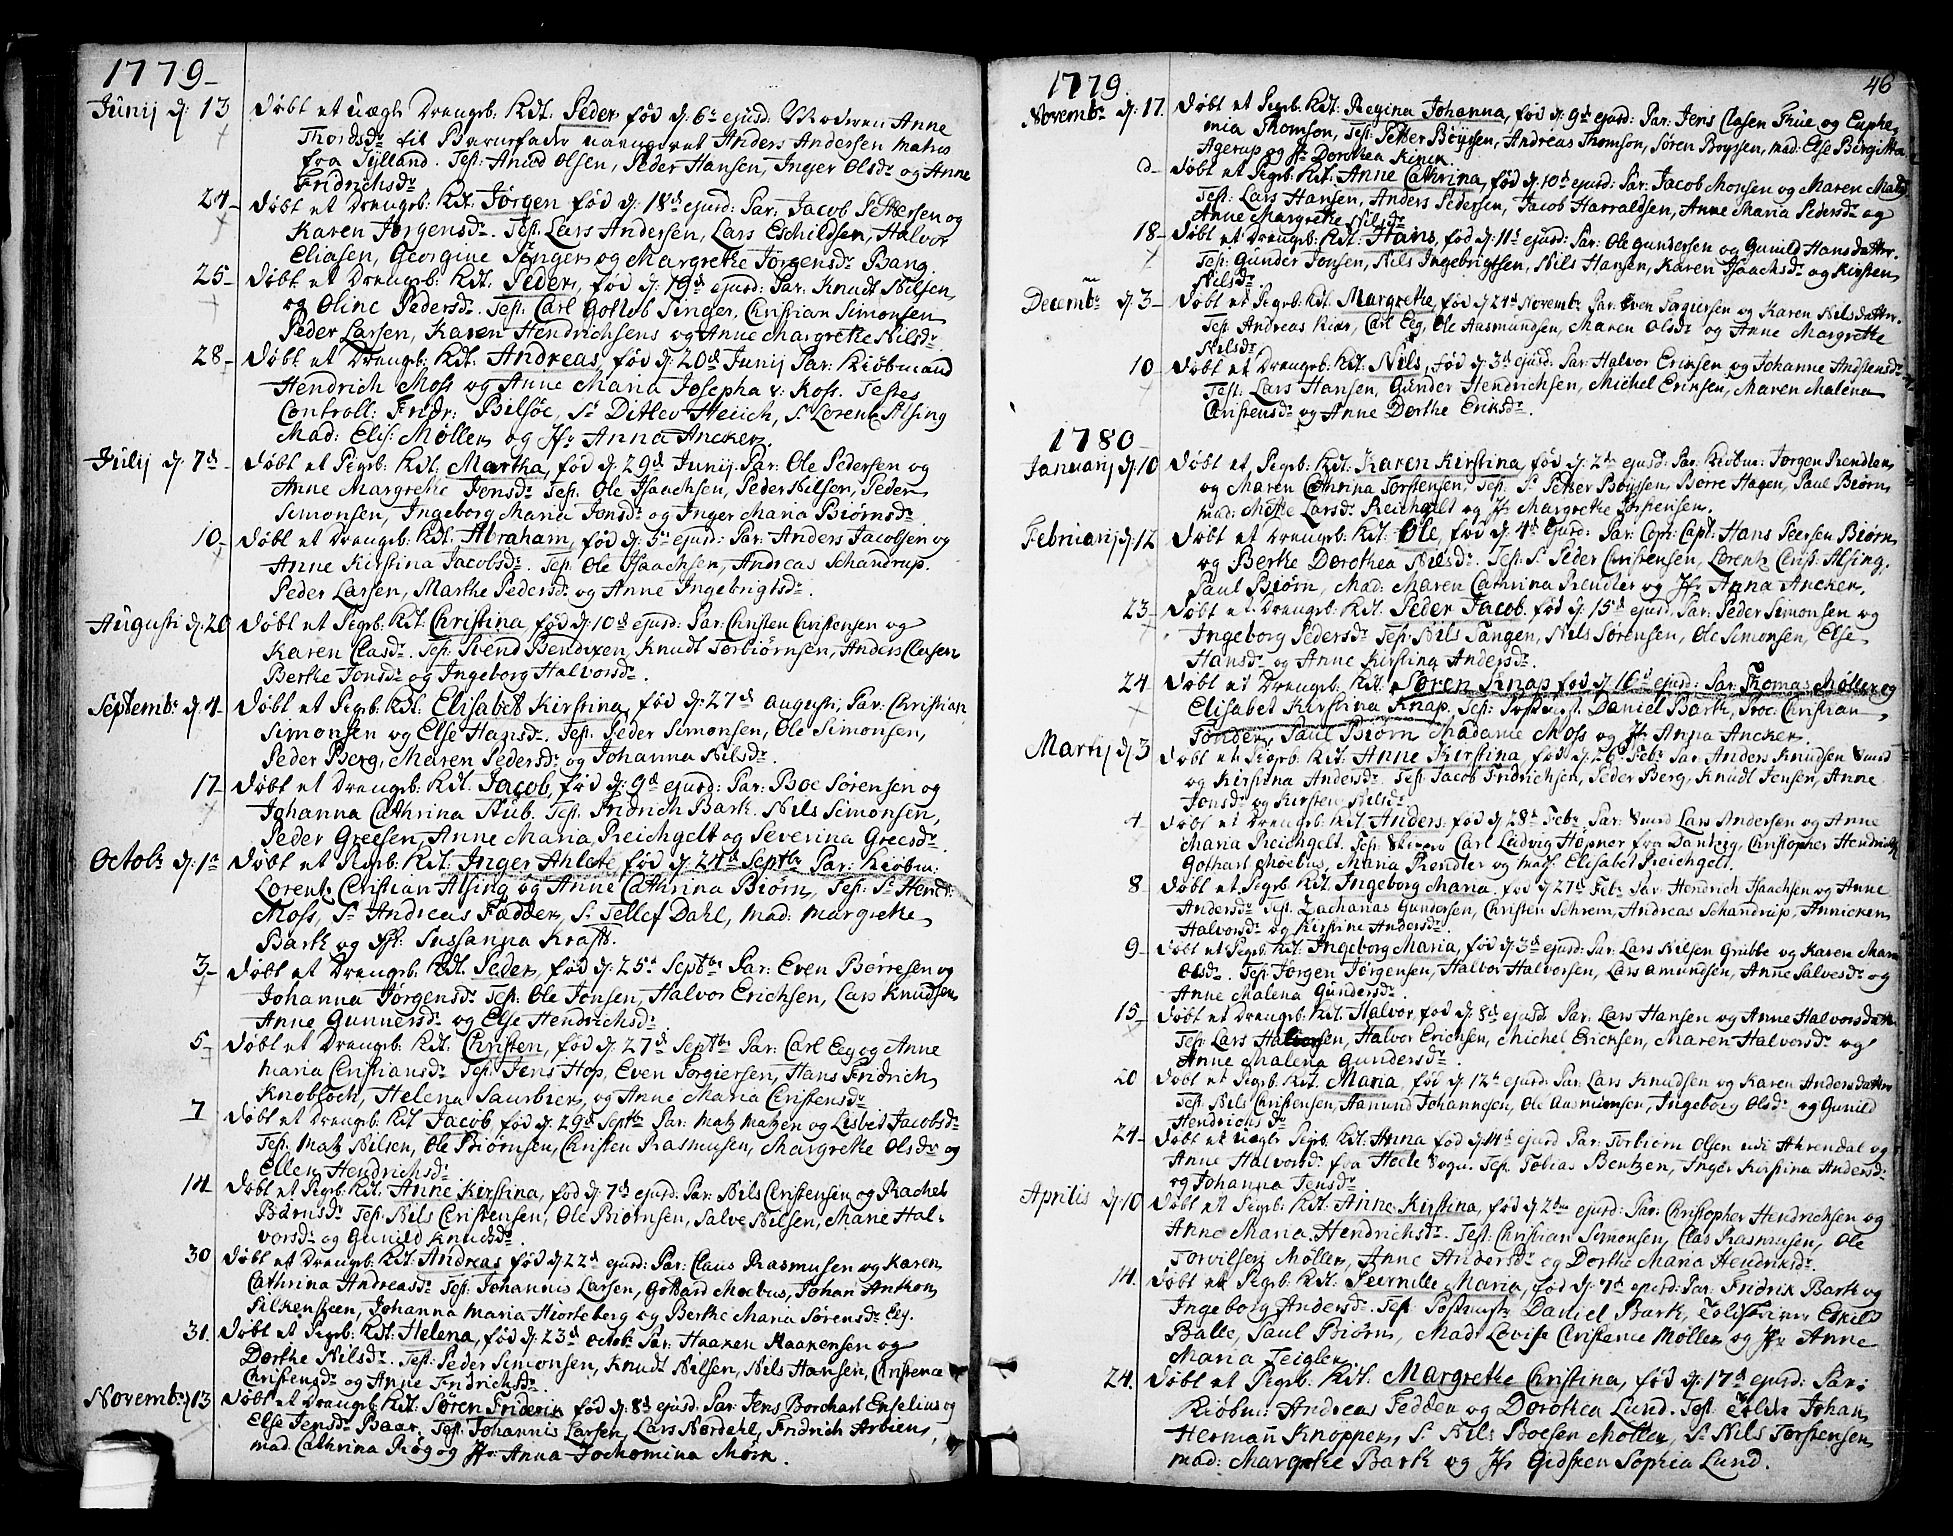 1779
Junij d: 13 Døbt et uægte Drengeb: Kdt. Peder, fød d: 6te ejusd: Moderen Anne
Thordsdr til Barnefader navngivet Anders Andersen matros
fra Jylland. Test: Anud Olsen, Peder Hansen, Inger Olsdr og Anne
Fridrichsdr
24 Døbt et Drengeb: Kdt. Jørgen fød d: 18d ejusd: Par: Jacob Pettersen og
Karen Jørgensdr. Test: Lars Andersen, Lars Eschildsen, Halvor
Eliasen, Georgine Tønger og Margrethe Jørgensdr Bang.
25 Døbt et Drengeb: Kdt. Peder, fød d: 19d ejusd: Par: Knudt Nilsen
og Oline Pedersdr. Test: Carl Gottlob Singer, Christian Simonsen
Peder Larsen, Karen Hendrichsens og Anne Margrethe Nilsdr
28 Døbt et Drengeb: Kdt. Andreas, fød d: 20d Junij Par: Kiøbmand
Hendrich Moss og Anne Maria Josepha v: Koss. Testes
Controll: Fridr: Bilsøe, Sr Ditlev Heiich, Sr Lorentz Alsing
Mad: Elis: Møller og Jfr Anna Ancker.
Julij d: 7d Døbt et Pigeb: Kdt: Martha, fød d: 29d Junij. Par: Ole Pedersen og
Anne Margrethe Jensdr Test: Ole Isaachsen, Peder Nilsen, Peder
Simonsen, Ingeborg Maria Jonsdr og Inger Maria Biørnsdr
10 Døbt et Drengeb: Kdt. Abraham, fød d: 5te ejusd: Par: Anders Jacobsen og
Anne Kirstina Jacobsdr. Test: Ole Isaachsen, Andreas Schandrup.
Peder Larsen, Marthe Pedersdr og Anne Ingebrigtsdr.
Augusti d: 20 Døbt et Pigeb: Kdt: Christina fød d: 10d ejusd: Par: Christen Christensen og
Karen Clasdr. Test: Svend Bendixen, Knudt Torbiørnsen, Anders Clasen
Berthe Jonsdr og Ingeborg Halvorsdr.
Septembr d: 4 Døbt et Pigeb: Kdt: Elisabet Kirstina, fød d: 27d Augusti, Par: Christian
Simonsen og Else Hansdr. Test: Peder Simonsen, Ole Simonsen,
Peder Berg, Maren Pedersdr og Johanna Nilsdr.
17 Døbt et Drengeb: Kdt. Jacob, fød d: 9d ejusd: Par: Boe Sørensen og
Johanna Cathrina Stub. Test: Fridrich Bark. Nils Simonsen,
Peder Greesen, Anne Maria Reichgelt og Severina Greesdr.
Octobr d: 1te Døbt et Pigeb: Kdt: Inger Ahlete, fød d: 24d Septbr Par: Kiøbm:
Lorentz Christian Alsing og Anne Cathrina Biørn, Test: Sr Hendr:
Moss, Sr Andreas Fædder, Sr Tellef Dahl, Mad: Margrethe
Bark og Jfr: Sussanna Kraft.
3 Døbt et Drengeb: Kdt. Peder, fød d: 25d Septbr Par: Even Børresen og
Johanna Jørgensdr Test: Ole Jonsen, Halvor Erichsen, Lars Knudsen
Anne Gunnersdr og Else Hendrichsdr
5 Døbt et Drengeb: Kdt. Christen, fød d: 27d Septbr Par: Carl Eeg og Anne
Maria Christiansdr Test: Jens Hop, Even Torgiersen, Hans Fridrich
Knobloch, Helena Saurbier, og Anne Maria Christensdr
7 Døbt et Drengeb: Kdt Jacob fød d: 29d Septbr Par: Matz Matzen og Lisbet Jacobsdr
Test: Matz Nilsen, Ole Biørnsen, Christen Rasmusen, Margrethe Olsdr og
Ellen Hendrichsdr
14 Døbt et Pigeb: Kdt: Anne Kirstina, fød d: 7d ejusd: Par: Nils Christensen og Rachel
Børnsdr Test: Nils Christensen, Ole Biørnsen, Salve Nilsen, Marie Hal-
vorsdr og Gunild Knudsdr.
30 Døbt et Drengeb: Kdt: Andreas fød d: 22d ejusd: Par: Claus Rasmusen og Karen
Cathrina Andreasdr Test: Johannis Larsen, Gottard Moebus, Johan Anthon
Silkensteen, Johanna Maria Hiorteberg og Berthe Maria Sørensdr Eeg.
31. Døbt et Pigeb: Kdt: Helena, fød d: 23d Octobr Par: Haaken Haakensen og
Dorthe Nilsdr. Test: Peder Simonsen, Knudt Nilsen, Nils Hansen, Christence
Christensdr og Anne Fridrichsdr.
Novembr d 13 Døbt et Drengeb: Kdt: Søren Friderich fød d: 8d ejusd: Par: Jens Borchart Enselius og
Else Jensdr Baar, Test: Johannis Larsen, Lars Nordahl, Fridrich Arbien,
mad. Cathrina Røg og Jfr Anna Jochomina Mørn.
1779. 46
Novembr d: 17 Døbt et Pigeb: Kdt: Regina Johanna, fød d: 9d ejusd: Par: Jens Clasen Thue og Euphe-
mia Thomson, Test: Petter Bøyssen, Andreas Thomson, Søren Boyssen, mad: Else Birgitta
Agerup og Jfr Dorothea Kinck.
d Døbt et Pigeb: Kdt: Anne Cathrina, fød d: 10d ejusd: Par: Jacob Monsen og Maren Matsdr
Test: Lars Hansen, Anders Pedersen, Jacob Harraldsen, Anne Maria Pedersdr og
Anne Margrethe Nilsdr
18 Døbt et Drengeb: Kdt: Hans, fød d: 11d ejusd: Par: Ole Gundersen og Gunild Hansdatter.
Test: Gunder Jonsen, Nils Ingebrigtsen, Nils Hansen, Karen Isaachsdr og Kirsten
Nilsdr
Decembr d 3 Døbt et Pigeb: Kdt. Margrethe, fød d 24d Novembr Par: Even Torgiersen og Karen Nilsdatter.
Test: Andreas Kier, Carl Eeg, Ole Aasmundsen, Maren Olsdr og Anne Margrethe
Nilsdr
10 Døbt et Drengeb: Kdt: Nils, fød d: 3d ejusd: Par: Halvor Erichsen og Johanne Andstensdr
Test: Lars Hansen, Gunder Hendrichsen, Michel Erichsen, Maren Malena
Christensdr og Anne Dorthe Eriksdr.
1780
Januarij d: 10 Døbt et Pigeb: Kdt: Karen Kirstina, fød d: 2den ejusd: Par: Kiøbm: Jørgen Rendler
og Maren Cathrina Torstensen, Test: Sr Petter Boyssen, Børre Hagen, Paul Biørn,
mad: Mette Larsdr Reichgelt og Jfr Margrethe Torstensen.
Februarij d: 12 Døbt et Drengeb: Kdt: Ole, fød d: 4d Ejusd: Par: Copv: Capt: Hans Peersen Biørn
og Berthe Dorothea Nilsdr. Test: Sr Peder Christensen, Lorentz Christ: Alsing,
Paul Biørn, Mad: Maren Cathrina Rendler og Jfr Anna Ancker.
23 Døbt et Drengeb: Kdt: Peder Jacob, fød d: 15d ejusd: Par: Peder Simonsen og
Ingeborg Pedersdr Test: Nils Tangen, Nils Sørensen, Ole Simonsen, Else
Hansdr og Anne Kirstina Andersdr.
24 Døbt et Drengeb: Kdt: Søren Knap fød d 16d ejusd: Par: Thomas Møller og
Elisabet Kirstina Knap. Test: Postmest. Daniel Bark, Proc: Christian
Tønder, Paul Biørn Madame Moss og Jfr Anna Ancker
Martij d 3 Døbt et Pigeb: Kdt: Anne Kirstina, fød d: 26d Febr Par: Anders Knudsen Smed
og Kirstina Andersdr Test: Jacob Fridrichsen, Peder Berg, Knudt Jensen, Anne
Jonsdr og Kirsten Nilsdr
4 Døbt et Drengeb: Kdt Anders, fød d: 28d Febr: Par: Smed Lars Andersen og Anne
Maria Reichgelt. Test: Skipper Carl Ludvig Høpner fra Dantzig, Christopher Hendrichs
Gothart Moebus, Maria Rendler og Mad: Elisabet Reichgelt.
8 Døbt et Pigeb: Kdt: Ingeborg Maria, fød d 27d Febr: Par: Hendrich Isaachsen og Anne
Andersdr Test: Zacharias Gundersen, Christen Schrem, Andreas Schandrup, Annicken
Halvorsdr og Kirstine Andersdr.
9 Døbt et Pigeb: Kdt: Ingeborg Maria, fød d: 3d ejusd: Par: Lars Nilsen Grubbe og Karen Maria
Olsdr. Test: Jørgen Jørgensen, Halvor Halvorsen, Lars Amundsen, Anne Salvesdr og
Anne Malena Gundersdr.
15 Døbt et Drengeb: Kdt: Halvor, fød d: 8d ejusd: Par: Lars Hansen og Anne Halvorsdatter
Test: Lars Halvorsen, Halvor Erichsen, Michel Ericksen, Maren Halvorsdr og
Anne Malena Gundersdr
20 Døbt et Pigeb: Kdt: Maria, fød d: 12te ejusd: Par: Lars Knudsen og Karen Andersdatter
Test: Nils Christensen, Aanund Johannesen, Ole Aasmunsen, Ingeborg Olsdr og Gunild
Hendrichsdr
24 Døbt et uægte Pigeb: Kdt: Anna fød d 14d ejusd Par: Torbiørn Olsen udi Ahrendal og
Anne Halvorsdr fra Holte Sogn. Test: Tobias Bentzen, Inger Kirstina Andersdr
og Johanna Jensdr
Aprilis d: 10 Døbt et Pigeb: Kdt: Anne Kirstina, fød d: 2den ejusd: Par: Christopher Hendrichsen og
Anne Maria Hendrichsdr. Test: Christian Simonsen, Clas Rasmusen, Ole
Torvilsen Møller, Anne Andersdr og Dorthe Maria Hendriksdr.
14. Døbt et Pigeb: Kdt: Peernille Maria, fød d: 7d ejusd: Par: Fridrik Bark og
Ingeborg Andersdr. Test: Postmestr Daniel Bark, Eskild
Balle, Paul Biørn, Mad: Lovise Christiane Møller og Jfr Anne
Maria Zeigler.
24. Døbt et Pigeb: Kdt: Margrethe Christina, fød d: 17d ejusd: Par:
Kiøbm: Andreas Fedder og Dorothea Lund. Test: Johan
Hermann Knopper, Sr Nils Boesen Møller, Sr Nils Torstensen
mad: Margrethe Bark og Jfr Gidsken Sophia Lund.